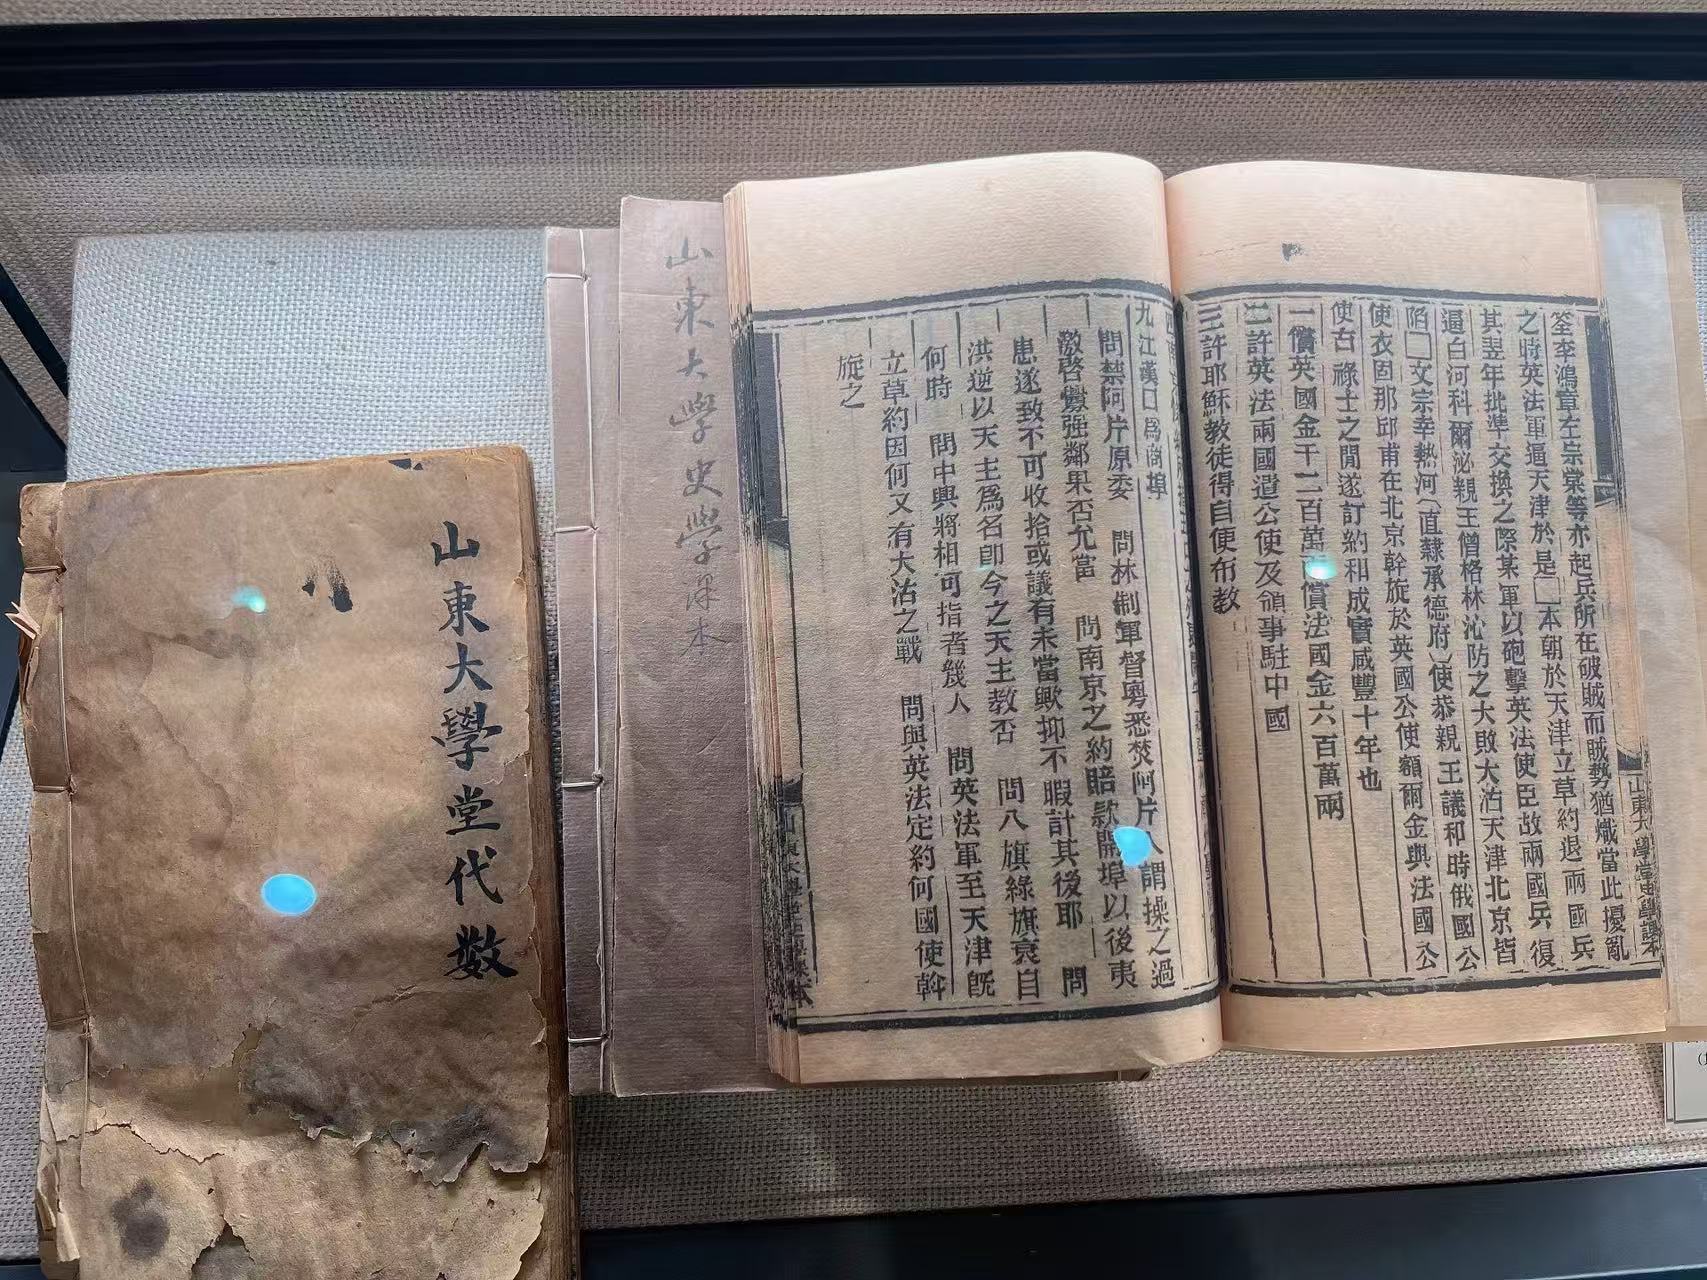 山東大學堂代数
山東大學史學課本
筌李鴻章左宗棠等亦起兵所在破賊而賊勢猶熾當此擾亂
之時英法軍逼天津於是□本朝於天津立草約退兩國兵
其翌年批準交換之際某軍以砲擊英法使臣故兩國兵復
逼白河科爾泌親王僧格林沁防之大敗大沽天津北京皆
陷□文宗幸熱河直隸承德府使恭親王議和時俄國公
使衣固那邱甫在北京幹旋於英國公使額爾金與法國公
使古祿士之閒遂訂約和成實咸豐十年也
一償英國金千二百萬 償法國金六百萬兩
二許英法兩國遣公使及領事駐中國
三許耶穌教徒得自使布教
山東大學堂史學課本
九江漢口爲商埠
問禁阿片原委 問林制軍督粵悉焚阿片 謂操之過
激啓釁强鄰果否允當 問南京之約賠款開埠以後夷
患遂致不可收拾或議有未當歟抑不暇計其後耶 問
洪逆以天主爲名卽今之天主教否 問八旗綠旗衰自
何時 問中興將相可指者幾人 問英法軍至天津旣
立草約因何又有大沽之戰 問與英法定約何國使斡
旋之